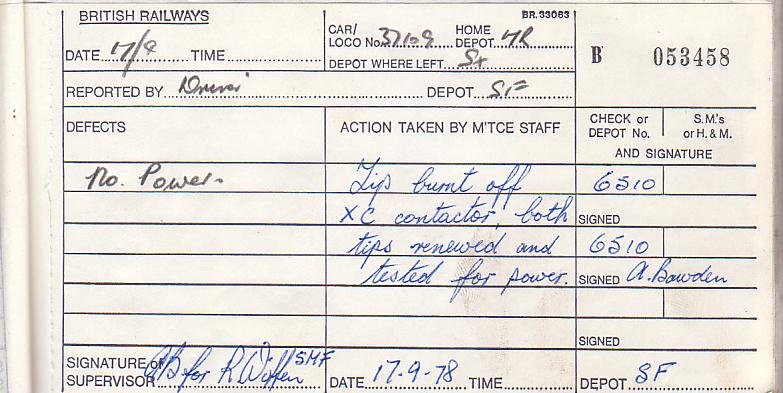 BRITISH RAILWAYS
BR.33063
DATE 17/9 TIME
CAR/ LOCO No. 37109 HOME DEPOT
DEPOT WHERE LEFT
B 053458
REPORTED BY Driver DEPOT SF
DEFECTS
ACTION TAKEN BY M'TCE STAFF
CHECK or DEPOT No.
S.M.'s or H. & M.
AND SIGNATURE
No. Power.
Tip burnt off
6510
XC contactor, both
SIGNED
tips renewed and
6510
tested for power.
SIGNED A. Bowden
SIGNED
SIGNATURE of SUPERVISOR AB for R Wiffen SMF
DATE 17-9-78 TIME
DEPOT SF